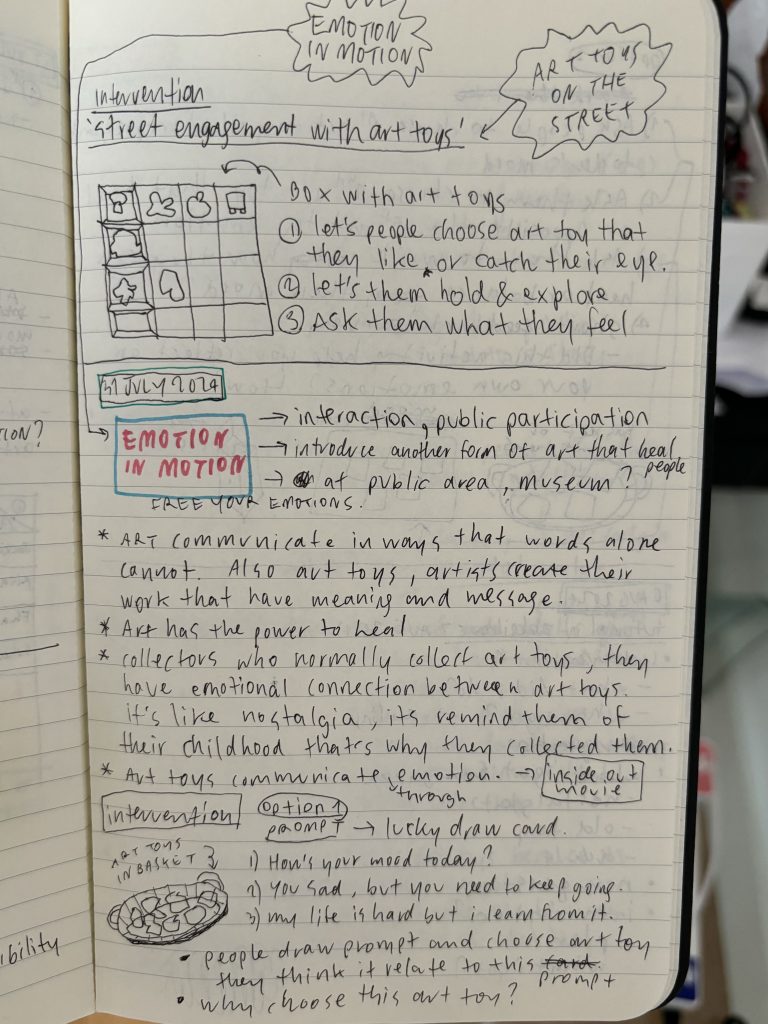 EMOTION
IN MOTION
ART TOYS
ON THE
STREET
intervention
'street engagement with art toys'
Box with art toys
① let's people choose art toy that
they like, or catch their eye.
② let's them hold & explore
③ Ask them what they feel
31 JULY 2024
EMOTION
IN MOTION
FREE YOUR EMOTIONS.
→ interaction, public participation
→ introduce another form of art that heal people
→ at public area, museum?
* ART communicate in ways that words alone
cannot. Also art toys, artists create their
work that have meaning and message.
* Art has the power to heal
* collectors who normally collect art toys, they
have emotional connection between art toys.
it's like nostalgia, its remind them of
their childhood that's why they collected them.
* Art toys communicate through emotion. → inside out movie
intervention option 1
PROMPT → lucky draw card.
ART TOYS
IN BASKET
1) How's your mood today?
2) You sad, but you need to keep going.
3) my life is hard but i learn from it.
• people draw prompt and choose art toy
they think it relate to this card. prompt
• why choose this art toy?
ION?
ibility